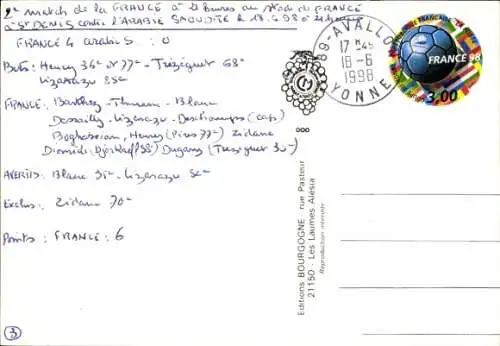 2e match de la FRANCE à 21 heures au stade de FRANCE
à St DENIS contre l'ARABIE SAOUDITE le 18.6.98 à
FRANCE 4 arabie S : 0
Buts : Henry 36e et 77e - Trézéguet 68e
Lizarazu 85e
FRANCE : Barthez - Thuram - Blanc
Dessailly - Lizarazu - Deschamps (cap)
Boghossian, Henry (Pires 77e) Zidane
Diomède (Djorkaeff 58) Dugarry (Trézéguet 30e)
AVERTIS : Blanc - Lizarazu
Exclus : Zidane 70e
Points : FRANCE : 6
3
89 - AVALLON
17 H45
18 - 6
1998
YONNE
REPUBLIQUE FRANCAISE
FRANCE 98
3,00
Editions BOURGOGNE rue Pasteur
21150 - Les Laumes Alésia
Reproduction interdite